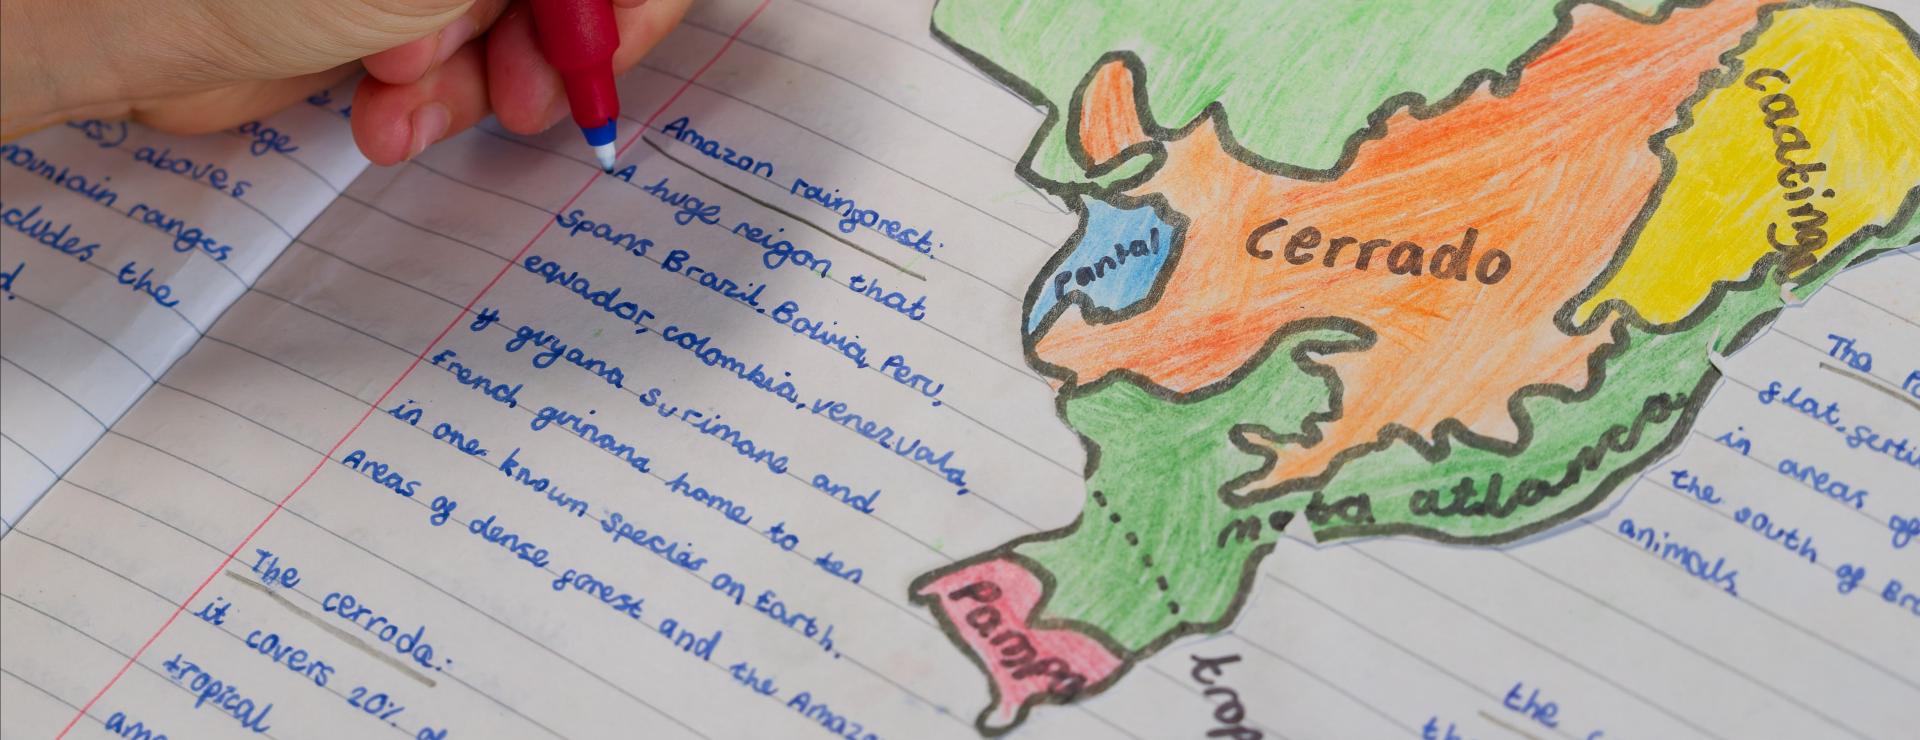 age
aboves
mountain ranges
the
Amazon rainforest:
A huge reigon that
Spans Brazil, Bolivia, Peru,
eqwador, colombia, venezuala,
guyana Surimane and
French guinana home to ten
in one known species on Earth.
Areas of dense forest and the
The cerroda:
it covers 20%
tropical
cerrado
Caatinga
Pantal
mata atlantica
Pampa
flat,
in areas of
the south of
animals.
the